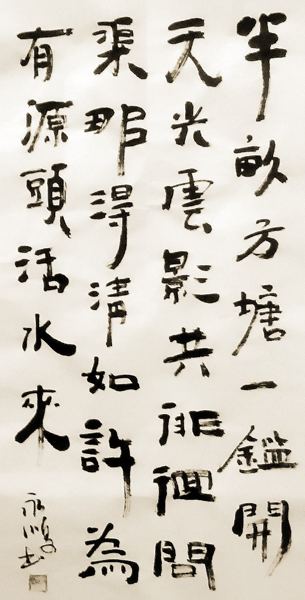 半畝方塘一鑑開
天光雲影共徘徊問
渠那得清如許為
有源頭活水來